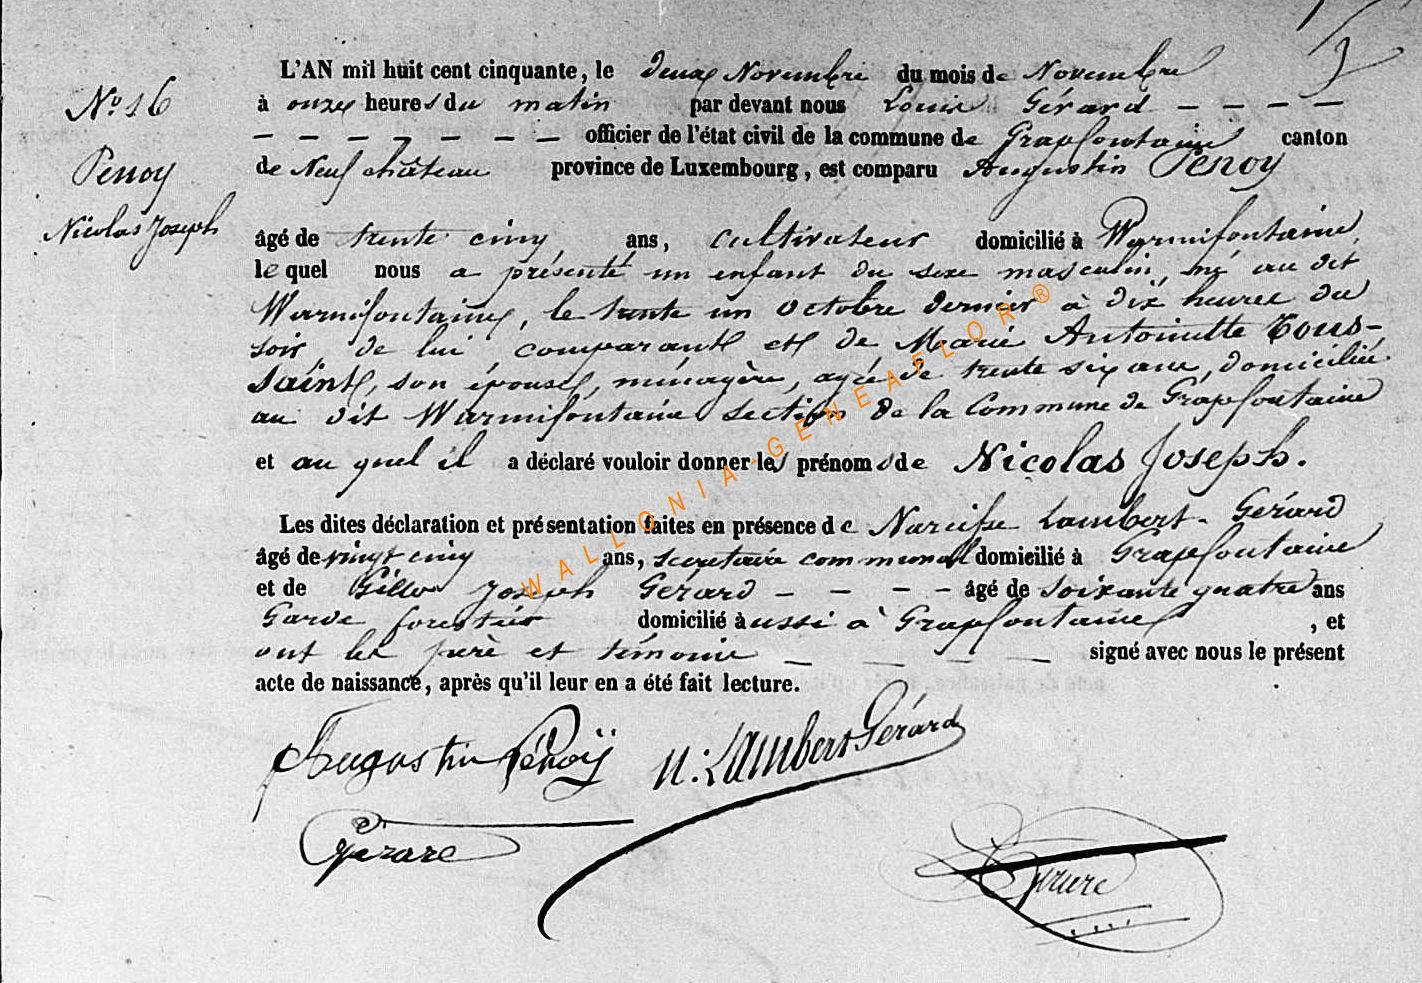 N° 16
Penoy
Nicolas Joseph
L'AN mil huit cent cinquante, le deux Novembre du mois de Novembre
à onze heures du matin par devant nous Louis Gérard – – – –
– – – – – – – – officier de l'état civil de la commune de Grapfontaine canton
de Neufchâteau province de Luxembourg, est comparu Augustin Penoy
âgé de trente cinq ans, cultivateur domicilié à Warmifontaine,
lequel nous a présenté un enfant du sexe masculin, né au dit
Warmifontaine, le trente un octobre dernier à dix heures du
soir, de lui comparant et de Marie Antoinette Tous-
saint, son épouse, ménagère, agée de trente six ans, domiciliée
au dit Warmifontaine section de la Commune de Grapfontaine
et au quel il a déclaré vouloir donner les prénoms de Nicolas Joseph.
Les dites déclaration et présentation faites en présence de Narcisse Lambert-Gérard
âgé de vingt cinq ans, secretaire communal domicilié à Grapfontaine
et de Gilles Joseph Gérard – – – – âgé de soixante quatre ans
Garde forestier domicilié aussi à Grapfontaine, et
ont les père et témoins – – – – – signé avec nous le présent
acte de naissance, après qu'il leur en a été fait lecture.
Augustin Pénoÿ N: Lambert Gérard
Gérard
WALLONIA-GENEAFLOR®